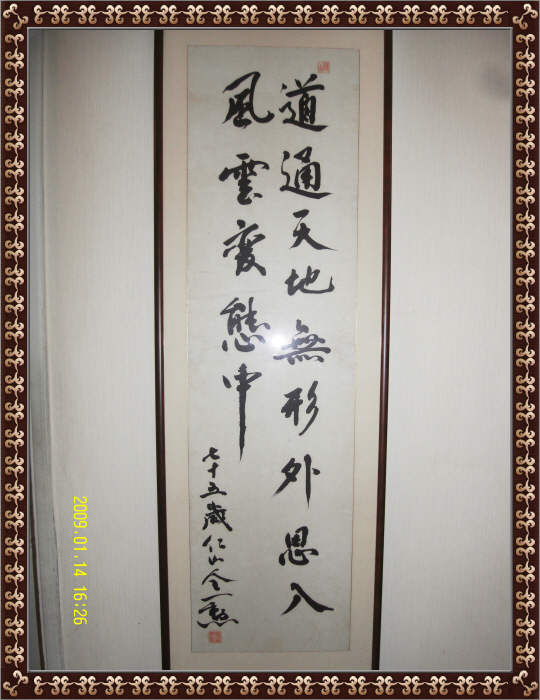 道通天地無形外思入
風雲変態中
七十五歲仁山金一勲
2009.01.14 16:26